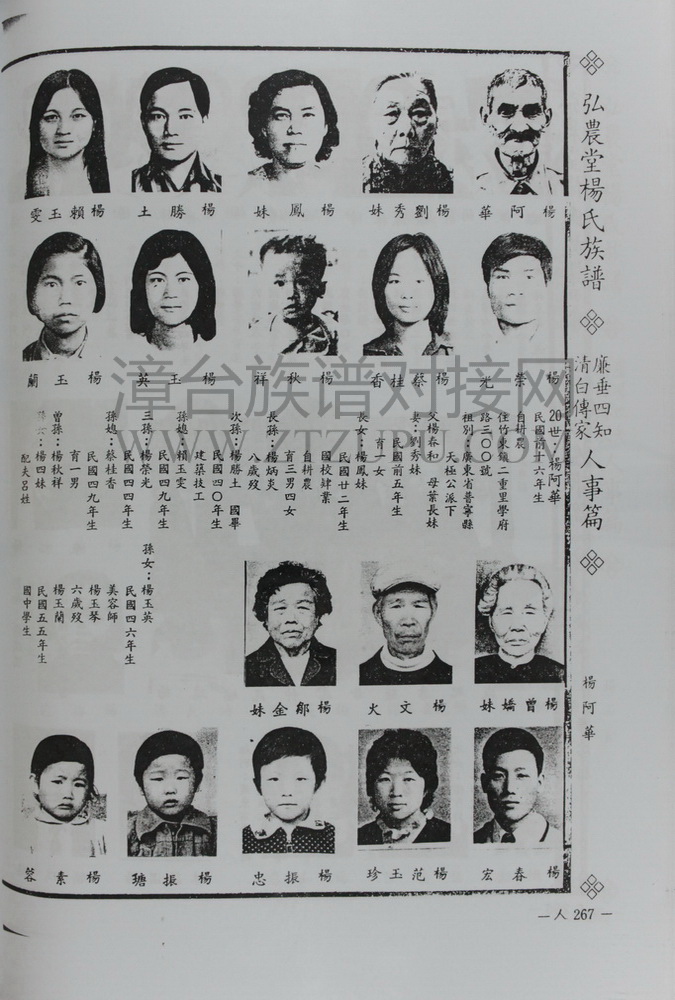 弘農堂楊氏族譜
廉垂四知
清白傳家
人事篇
楊阿華
楊阿華
楊劉秀妹
楊鳳妹
楊勝土
楊賴玉雯
楊榮光
楊蔡桂香
楊秋祥
楊玉英
楊玉蘭
20世：楊阿華
民國前十六年生
自耕農
住竹東鎮二重里學府
路三〇〇號
祖別：廣東省普寧縣
天極公派下
父楊春和 母葉長妹
妻：劉秀妹
民國前五年生
育一女
長女：楊鳳妹
民國廿二年生
國校肄業
自耕農
育三男四女
長孫：楊炳炎
八歲歿
次孫：楊勝土 國畢
民國四〇年生
建築技工
孫媳：賴玉雯
民國四九年生
三孫：楊榮光
民國四四年生
孫媳：蔡桂香
民國四九年生
育一男
曾孫：楊秋祥
孫女：楊四妹
配夫呂姓
孫女：楊玉英
民國四六年生
美容師
楊玉琴
六歲歿
楊玉蘭
民國五五年生
國中學生
楊曾嬌妹
楊文火
楊鄔金妹
楊春宏
楊范玉珍
楊振忠
楊振瑭
楊素蓉
漳台族谱对接网
WWW.ZTZUPU.COM
—人 267—